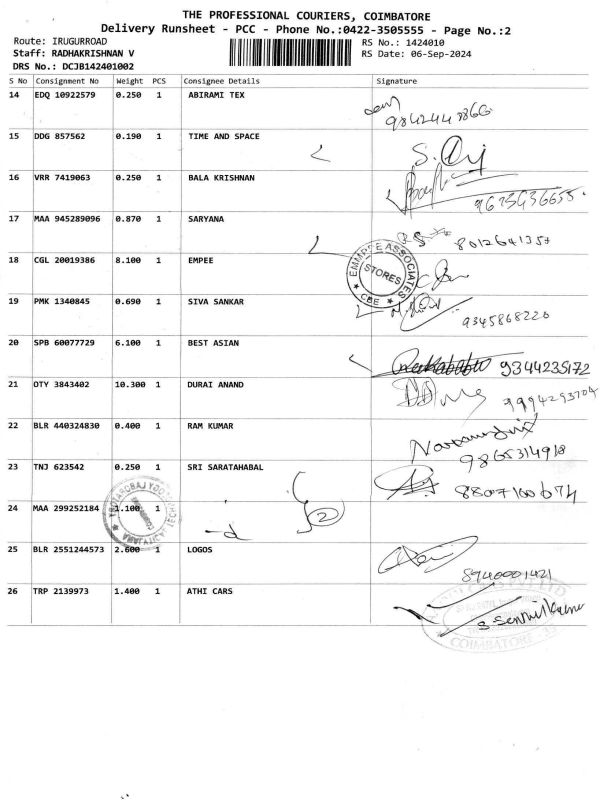 THE PROFESSIONAL COURIERS, COIMBATORE
Delivery Runsheet - PCC - Phone No.:0422-3505555 - Page No.:2
Route: IRUGURROAD
RS No.: 1424010
Staff: RADHAKRISHNAN V
RS Date: 06-Sep-2024
DRS No.: DCJB142401002
S No Consignment No Weight PCS Consignee Details Signature
14 EDQ 10922579 0.250 1 ABIRAMI TEX
15 DDG 857562 0.190 1 TIME AND SPACE
16 VRR 7419063 0.250 1 BALA KRISHNAN
17 MAA 945289096 0.870 1 SARYANA
8012641357
18 CGL 20019386 8.100 1 EMPEE
EMMPEE ASSOCIATES
STORES
CBE
19 PMK 1340845 0.690 1 SIVA SANKAR
9345868220
20 SPB 60077729 6.100 1 BEST ASIAN
9344235172
21 OTY 3843402 10.300 1 DURAI ANAND
9994293704
22 BLR 440324830 0.400 1 RAM KUMAR
9865314918
23 TNJ 623542 0.250 1 SRI SARATAHABAL
8807100674
24 MAA 299252184 1.100 1
2
25 BLR 2551244573 2.600 1 LOGOS
8940001421
26 TRP 2139973 1.400 1 ATHI CARS
S. Senthilkumar
COIMBATORE